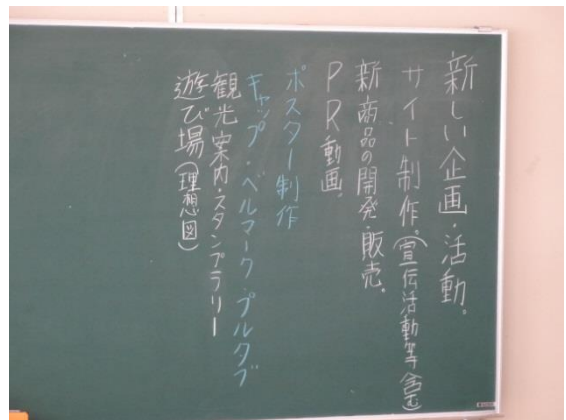 新しい企画・活動。
サイト制作。(宣伝活動等含む)
新商品の開発・販売。
PR動画。
ポスター制作
キャップ・ベルマーク・プルタブ
観光案内・スタンプラリー
遊び場(理想図)